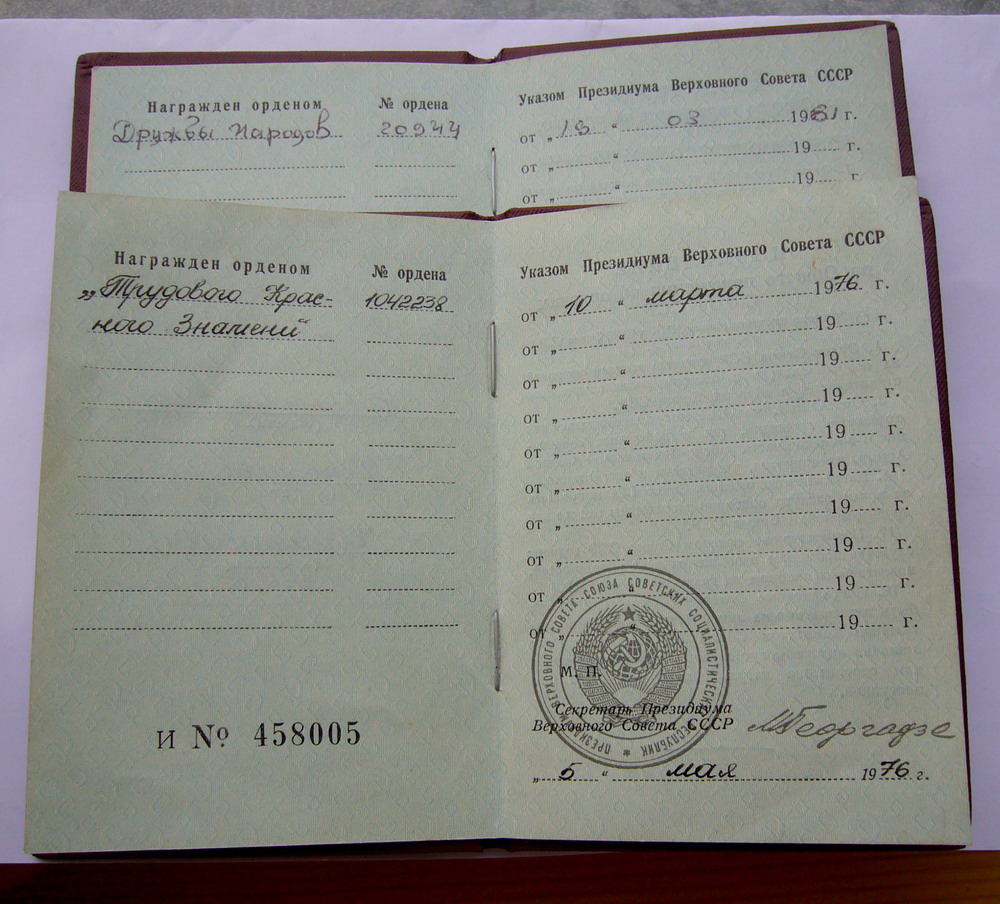 Награжден орденом № ордена
Дружбы Народов 20944
Указом Президиума Верховного Совета СССР
от „ 13 “ 03 1981 г.
от „ “ 19 г.
от „ “ 19 г.
Награжден орденом № ордена
„Трудового Крас- 1042238
ного Знамени“
Указом Президиума Верховного Совета СССР
от „ 10 “ марта 1976 г.
от „ “ 19 г.
от „ “ 19 г.
от „ “ 19 г.
от „ “ 19 г.
от „ “ 19 г.
от „ “ 19 г.
от „ “ 19 г.
от „ “ 19 г.
от „ “ 19 г.
ПРЕЗИДИУМ ВЕРХОВНОГО СОВЕТА СОЮЗА СОВЕТСКИХ СОЦИАЛИСТИЧЕСКИХ РЕСПУБЛИК *
М. П.
Секретарь Президиума
Верховного Совета СССР МГеоргадзе
„ 5 “ мая 1976 г.
И № 458005